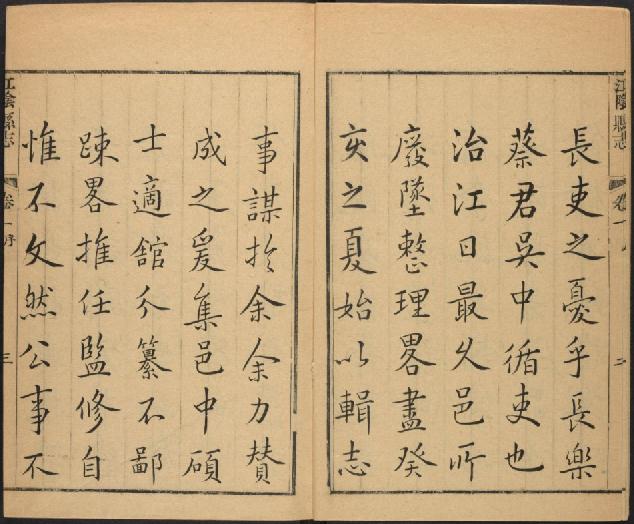 江陰縣志
卷一
二
長吏之憂乎長樂
蔡君吳中循吏也
治江日最久邑所
廢墜整理畧盡癸
亥之夏始以輯志
事謀扵余余力賛
成之爰集邑中碩
士適舘分纂不鄙
踈畧推任監修自
惟不文然公事不
江陰縣志
卷一序
三